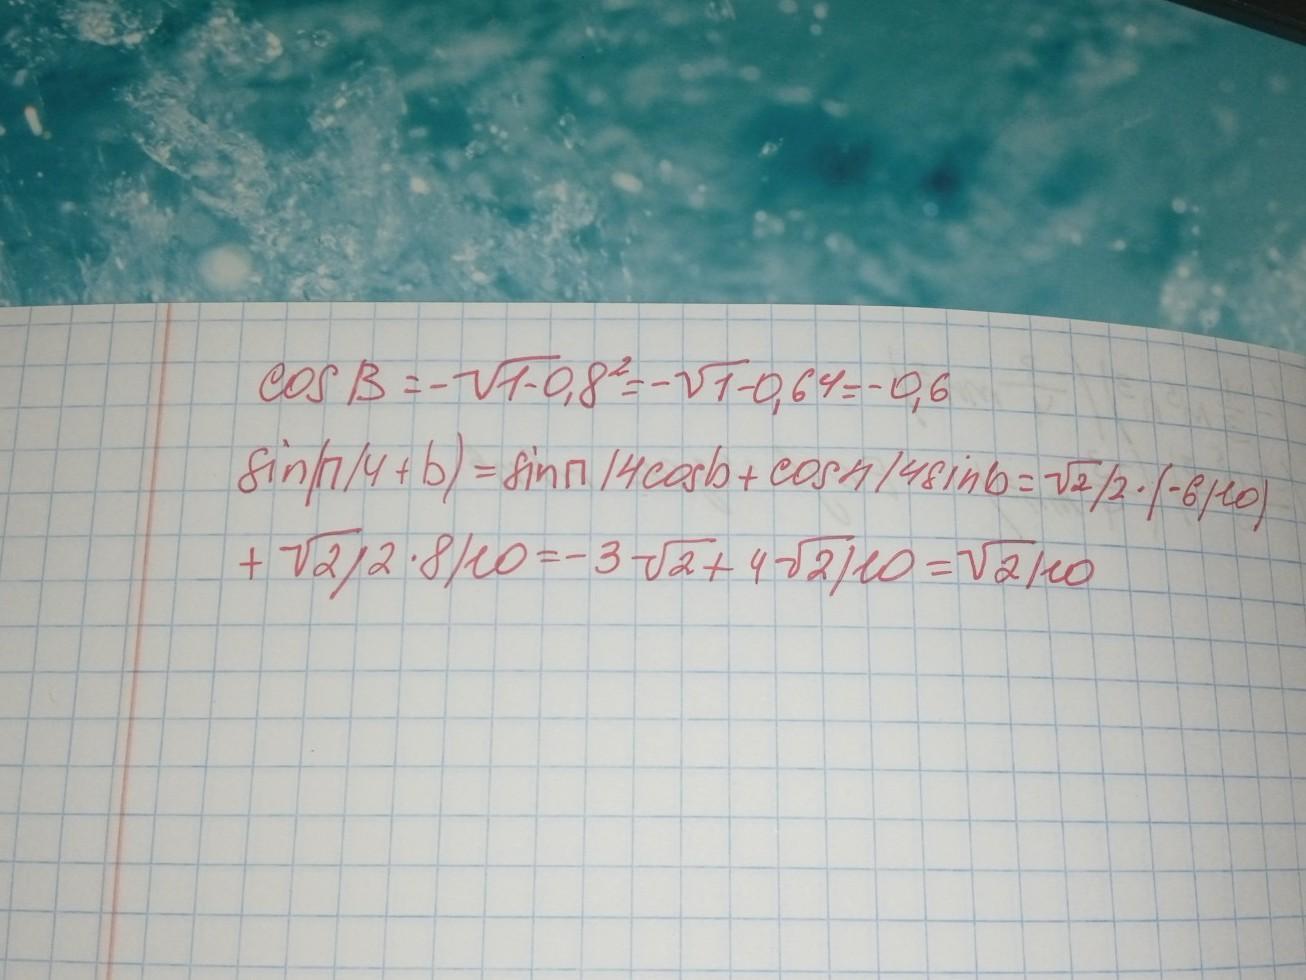 cos B = -√1-0,8² = -√1-0,64 = -0,6
sin(π/4 + b) = sin π/4 cos b + cos π/4 sin b = √2/2 · (-6/10)
+ √2/2 · 8/10 = -3√2 + 4√2/10 = √2/10